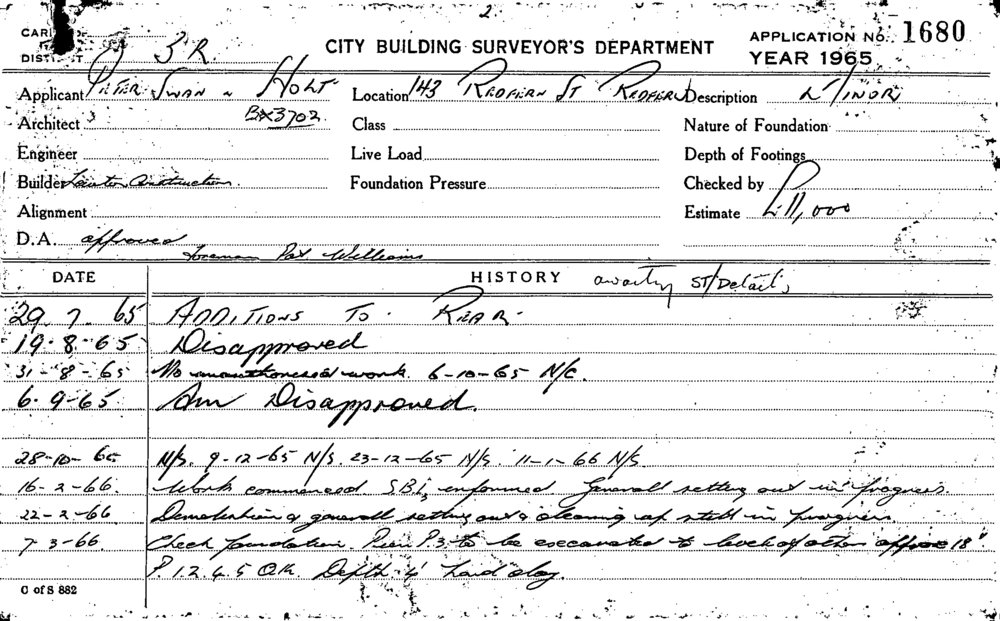 2.
CARD
DISTRICT S R.
CITY BUILDING SURVEYOR'S DEPARTMENT
APPLICATION No. 1680
YEAR 1965
Applicant Peter Swan n Holt Location 143 Redfern St Redfern Description Minor
Architect BX3702 Class Nature of Foundation
Engineer Live Load Depth of Footings
Builder Lawton Construction. Foundation Pressure Checked by
Alignment Estimate £11,000
D.A. approved
Foreman Pat Williams
DATE HISTORY awaiting ST/Details
29. 7. 65 ADDITIONS TO REAR.
19.8.65 Disapproved
31-8-65 No unauthorised work. 6-10-65 N/C.
6.9.65 Am Disapproved.
28-10-65 N/S. 9-12-65 N/S. 23-12-65 N/S. 11-1-66 N/S.
16-2-66. Work commenced. SBI, informed Generall setting out in progress.
22-2-66. Demolition & generall setting out & cleaning up still in progress.
7-3-66. Check foundation. Pier P.3 to be excavated to level of others approx 18"
P. 1.2.4.5 O.K. Depth 4' hard clay.
C of S 882